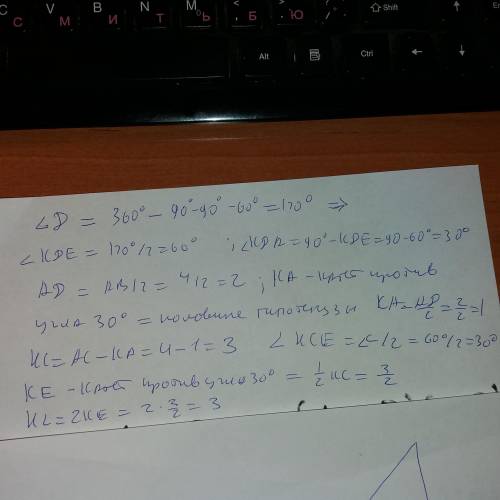 C V B N M < >
С М И Т Ь , Б . Ю Shift
Alt Ctrl
∠D = 360° − 90° − 90° − 60° = 120° ⇒
∠KDE = 120°/2 = 60° ; ∠KDA = 90° − KDE = 90 − 60° = 30°
AD = AB/2 = 4/2 = 2 ; KA − катет против
угла 30° = половине гипотенузы KA = AD/2 = 2/2 = 1
KC = AC − KA = 4 − 1 = 3 ∠KCE = ∠C/2 = 60°/2 = 30°
KE − катет против угла 30° = 1/2 KC = 3/2
KL = 2KE = 2 · 3/2 = 3